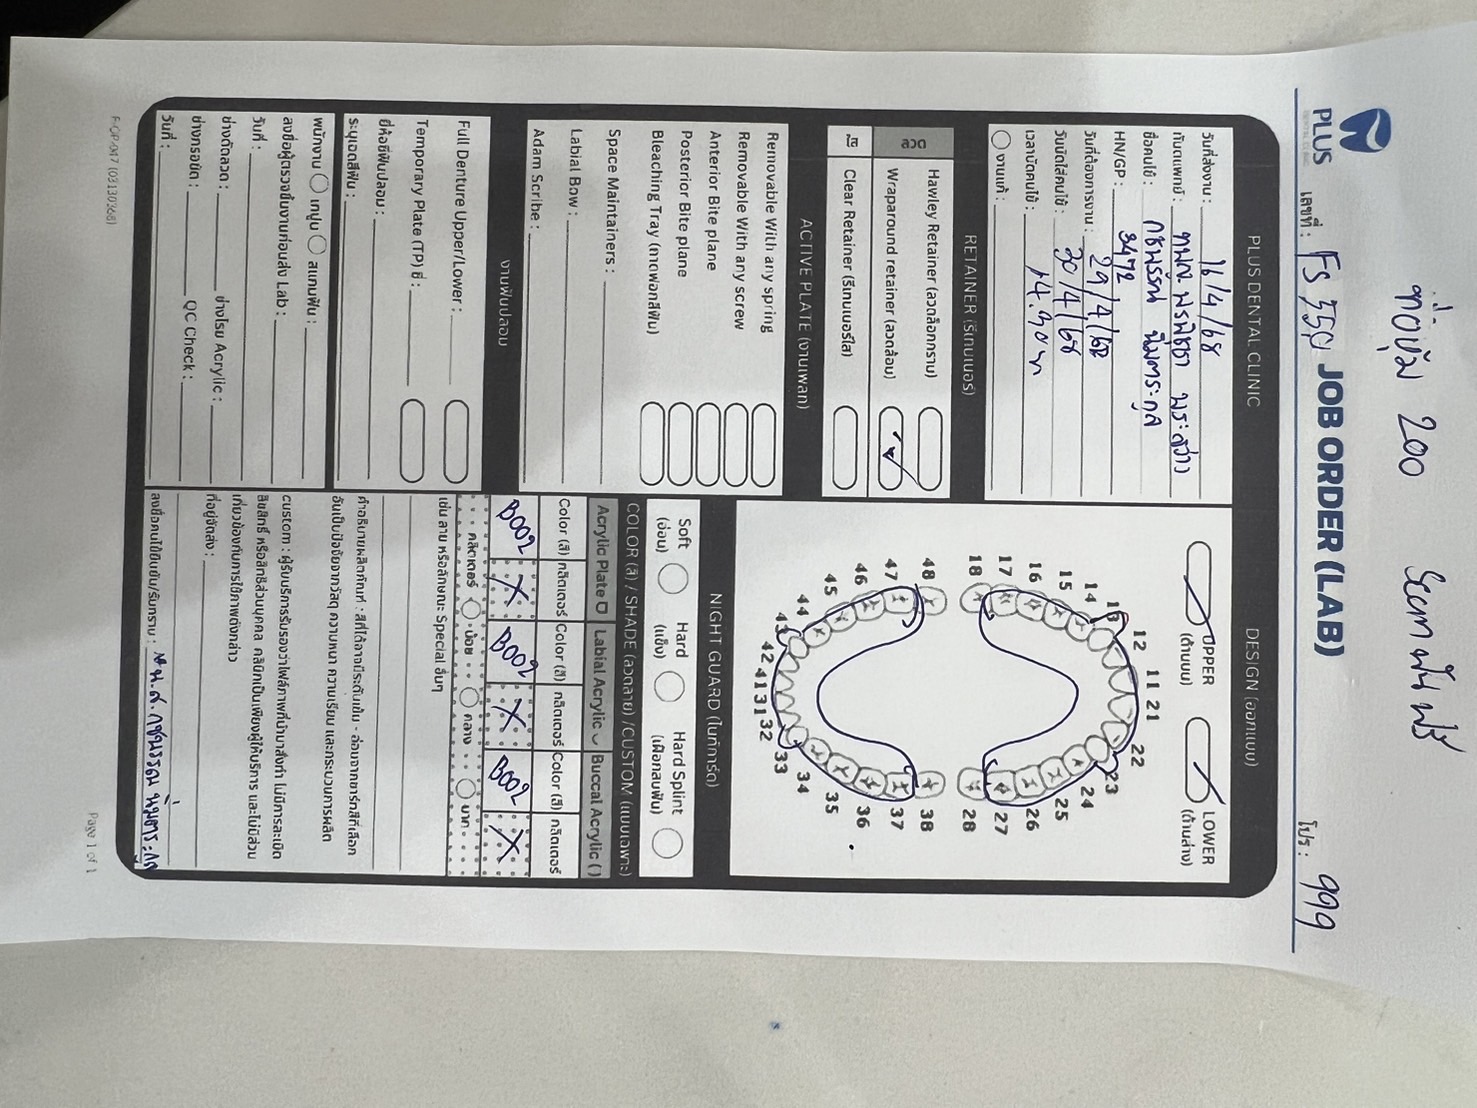 ท่อบุ๋ม 200 Scan ฟันฟรี
PLUS
DENTAL CLINIC
เลขที่ : FS 550 JOB ORDER (LAB) โปร : 999
PLUS DENTAL CLINIC
วันที่ส่งงาน : 16/4/68
ทันตแพทย์ :
ชื่อคนไข้ :
HN/GP : 3472
วันที่ต้องการงาน : 29/4/68
วันนัดใส่คนไข้ : 30/4/68
เวลานัดคนไข้ : 14.30 น
งานแก้ :
RETAINER (รีเทนเนอร์)
ลวด
Hawley Retainer (ลวดล็อกกราม)
Wraparound retainer (ลวดล้อม)
ใส
Clear Retainer (รีเทนเนอร์ใส)
ACTIVE PLATE (งานเพลท)
Removable With any spring
Removable With any screw
Anterior Bite plane
Posterior Bite plane
Bleaching Tray (ถาดฟอกสีฟัน)
Space Maintainers :
Labial Bow :
Adam Scribe :
งานฟันปลอม
Full Denture Upper/Lower :
Temporary Plate (TP) ซี่ :
ยี่ห้อซี่ฟันปลอม :
ระบุเฉดสีฟัน :
พนักงาน เทปูน สแกนฟัน :
ลงชื่อผู้ตรวจชิ้นงานก่อนส่ง Lab :
วันที่ :
ช่างดัดลวด : ช่างโรย Acrylic :
ช่างกรอขัด : QC Check :
วันที่ :
DESIGN (ออกแบบ)
UPPER
(ด้านบน)
LOWER
(ด้านล่าง)
18 17 16 15 14 13 12 11 21 22 23 24 25 26 27 28
48 47 46 45 44 43 42 41 31 32 33 34 35 36 37 38
NIGHT GUARD (ไนท์การ์ด)
Soft
(อ่อน)
Hard
(แข็ง)
Hard Splint
(เฝือกสบฟัน)
COLOR (สี) / SHADE (ลวดลาย) /CUSTOM (แบบเฉพาะ)
Acrylic Plate Labial Acrylic Buccal Acrylic ( )
Color (สี) กลิตเตอร์ Color (สี) กลิตเตอร์ Color (สี) กลิตเตอร์
B002 X B002 X B002 X
กลิตเตอร์ น้อย กลาง มาก
เช่น ลาย หรือลักษณะ Special อื่นๆ
คำอธิบายผลิตภัณฑ์ : สีที่ได้อาจมีระดับเข้ม - อ่อนจากชาร์ทสีที่เลือก
อันเป็นปัจจัยจากวัสดุ ความหนา ความเรียบ และกระบวนการผลิต
custom : ผู้รับบริการรับรองว่าไฟล์ภาพที่นำมาสั่งทำ ไม่มีการละเมิด
ลิขสิทธิ์ หรือสิทธิส่วนบุคคล คลินิกเป็นเพียงผู้ให้บริการ และไม่มีส่วน
เกี่ยวข้องกับการใช้ภาพดังกล่าว
ที่อยู่จัดส่ง :
ลงชื่อคนไข้ยืนยัน/รับทราบ : น.ส.
F-OP-047 (03130368)
Page 1 of 1